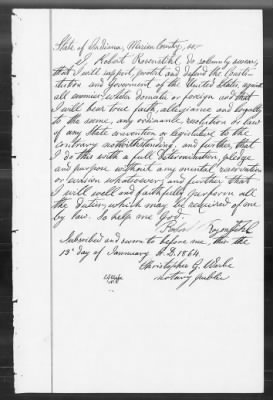 State of Indiana, Marion County, ss:
I, Robert Rosenthal do solemnly swear,
that I will support, protect and defend the Consti-
tution and Government of the United States, against
all enemies whether domestic or foreign and that
I will bear true faith, allegiance and loyalty
to the same, any ordinance, resolution or law
of any State convention or legislature to the
contrary notwithstanding, and further, that
I do this with a full determination, pledge
and purpose without any mental reservation
or evasion whatsoever; and further that
I will well and faithfully perform all
the duties, which may be required of me
by law. So help me God.
Robert
Subscribed and sworn to before me, this the
13th day of January A.D. 1864
Christopher G.
notary public